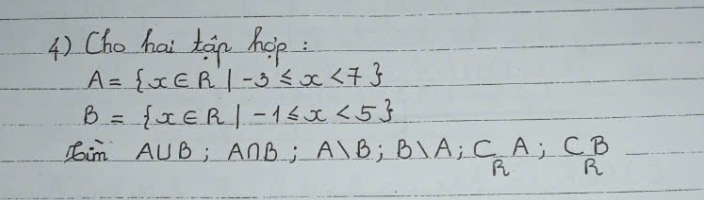 4) Cho hai tập hợp :
A = {x ∈ R | -3 ≤ x < 7}
B = {x ∈ R | -1 ≤ x < 5}
Tìm A∪B ; A∩B ; A\B ; B\A ; C_R A ; C_R B